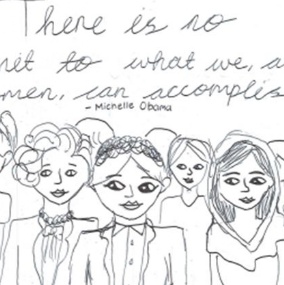 There is no
mit to what we, a
men, can accomplis
- Michelle Obama